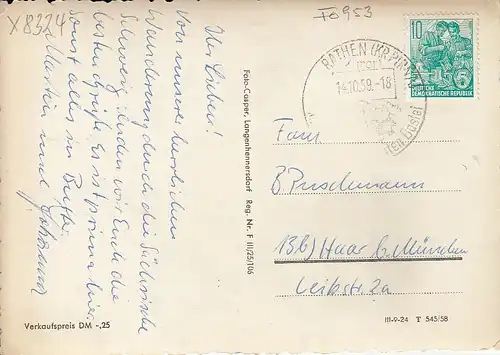 X 8324
Fo 953
Ihr Lieben!
Von unserer herrlichen
Wanderung durch die Sächsische
Schweiz senden wir Euch die
besten Grüße. Es ist prima hier
sonst alles in Butter.
Martin und
Foto-Casper, Langenhennersdorf Reg. Nr. F III/25/106
10
DEUTSCHE
DEMOKRATISCHE REPUBLIK
RATHEN (KR PIRNA)
14.10.59.-18
Bastei
Fam.
B. Puschmann
13b) Haar b. München
Leibstr. 2a
Verkaufspreis DM -,25
III-9-24 T 545/58